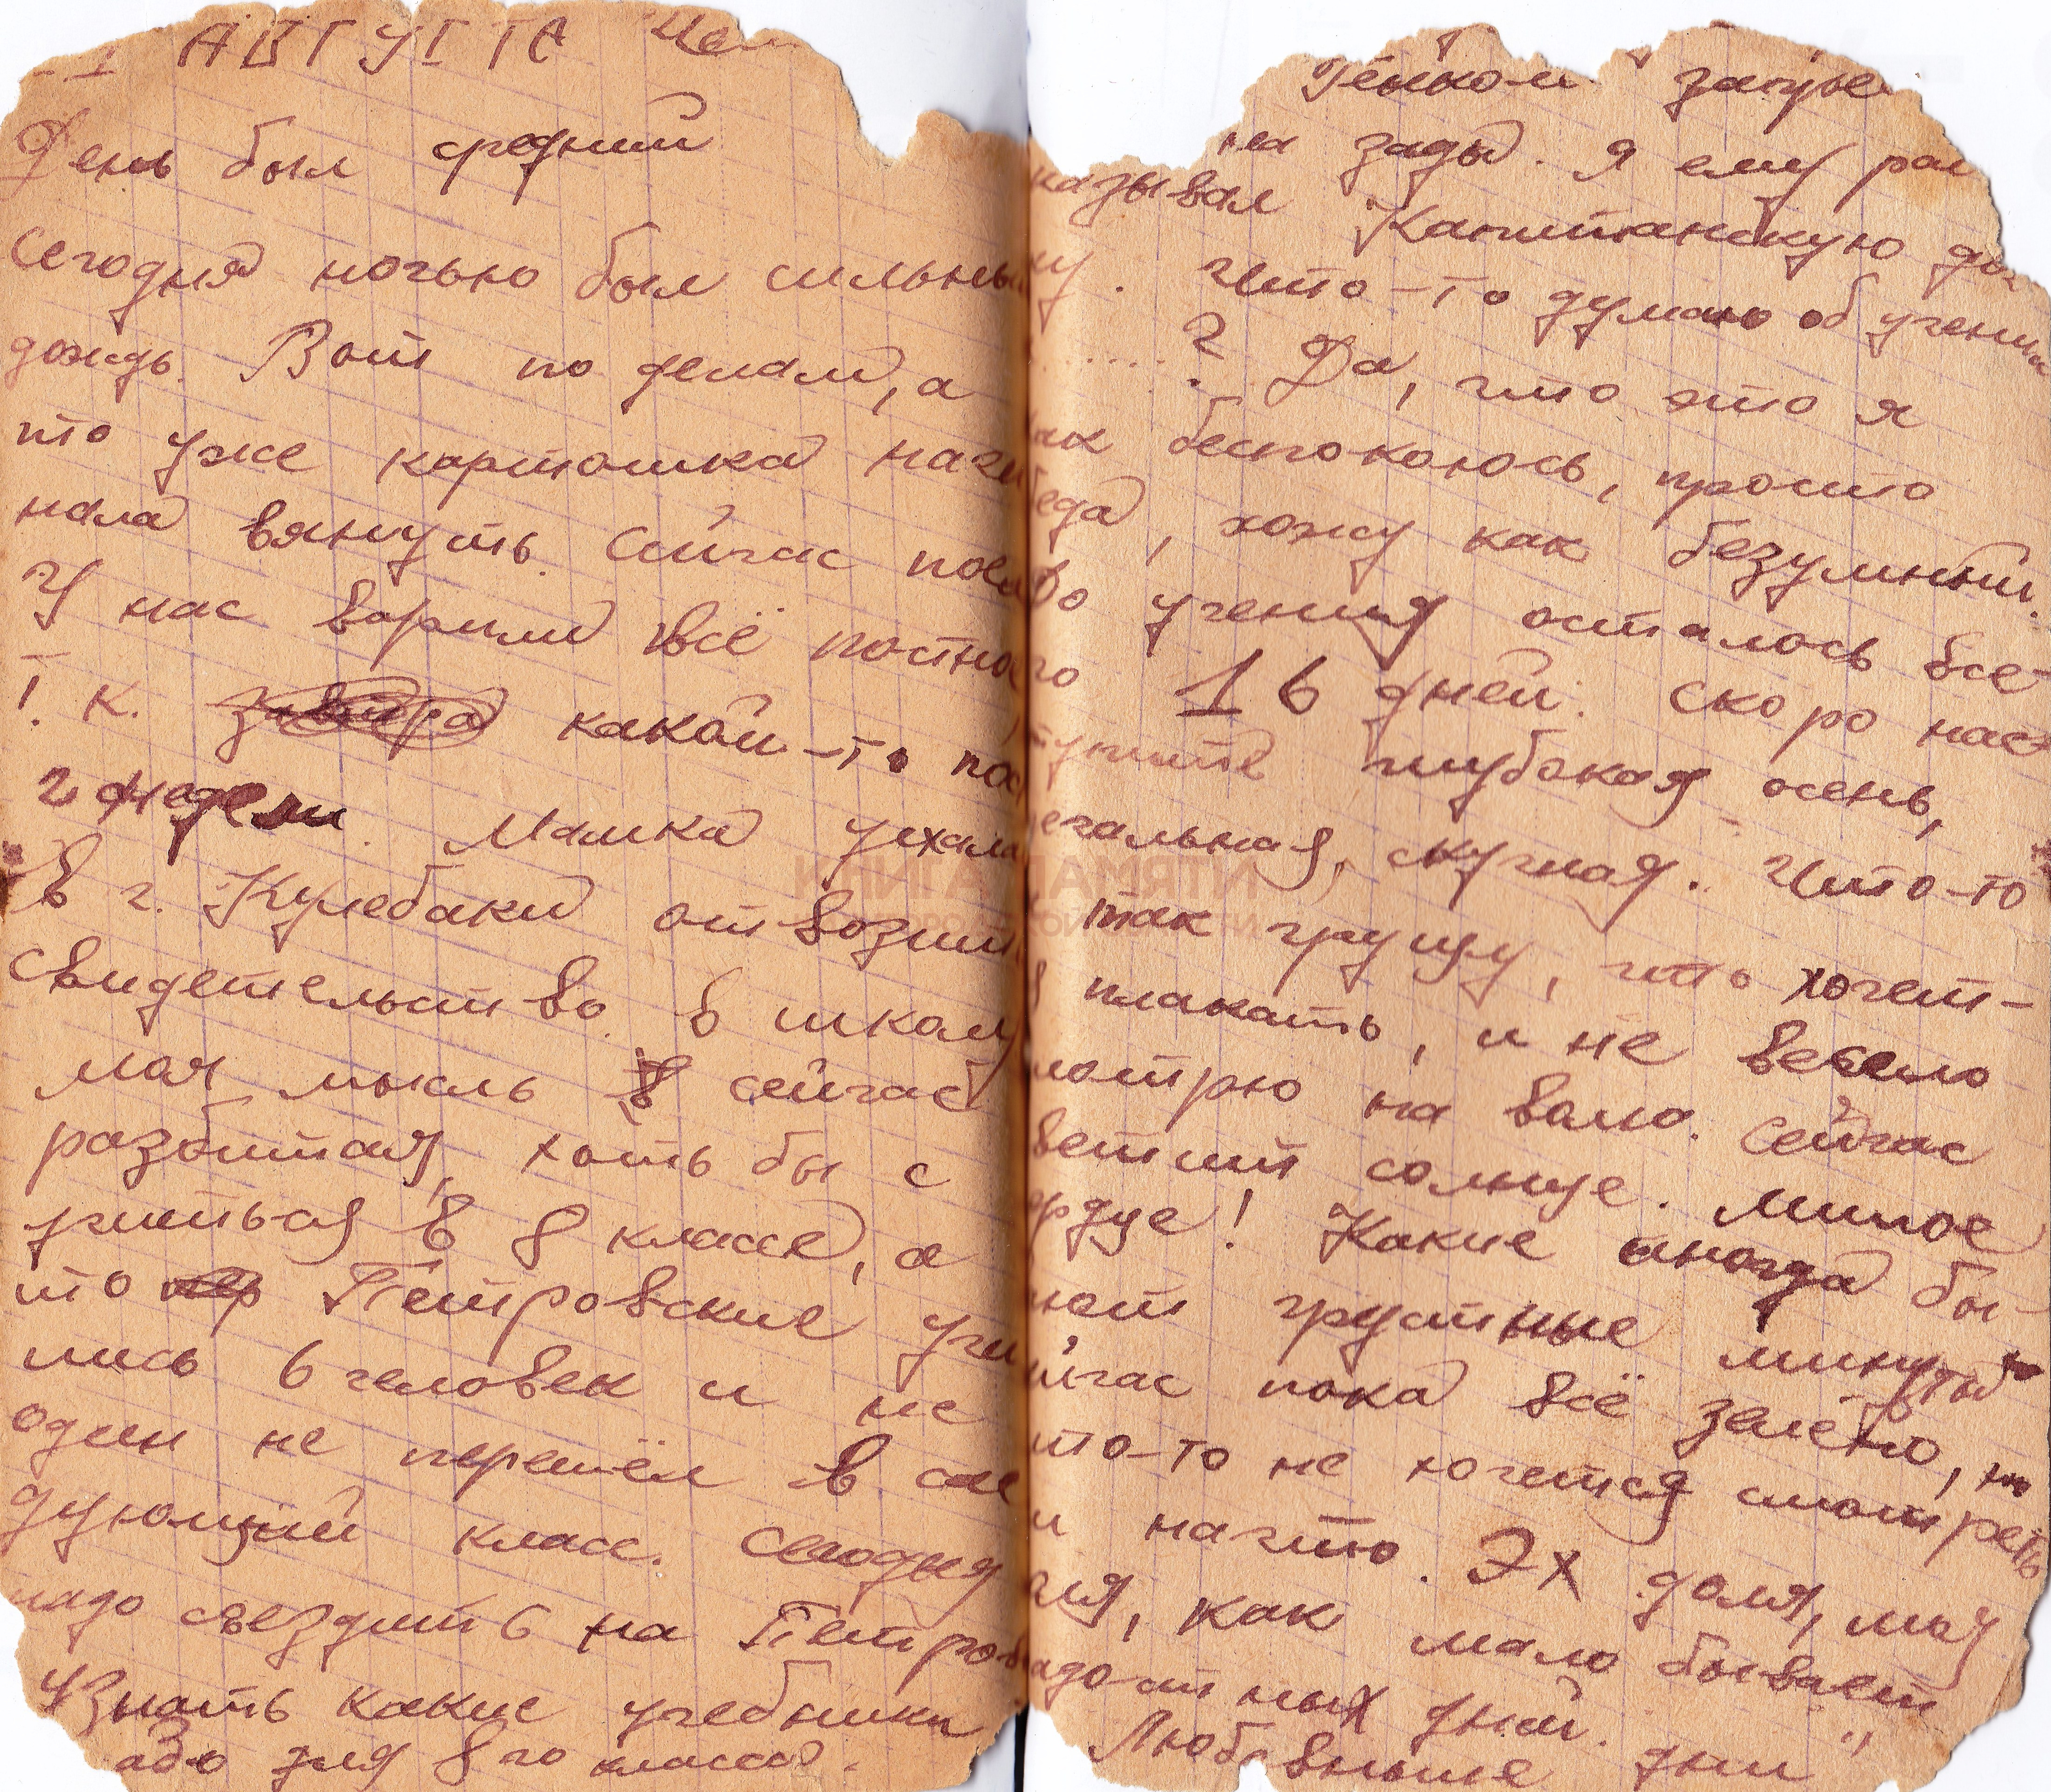 АВГУСТА
День был средний
Сегодня ночью был сильны
дождь. Вот по делам, а
то уже картошка начи
нала вянуть. Сейчас
У нас варили всё постно
т. к. завтра какой-то пос
2 недели. Мамка уехала
в г. Кулебаки отвозит
свидетельство в школу
моя мысль в сейчас
разбитая, хоть бы с
учиться в 8 классе, а
то Петровские учи
лись 6 человек и не
один не перешёл в сле
дующий класс. Сегодня
надо съездить на Петров
Узнать какие учебники
адо для 8го класса.
Генкой
на зады. Я ему рас
казывал Капитанскую доч
ку. Что-то думаю об учении
.....? Да, что это я
ак беспокоюсь, просто
беда, хожу как безумный.
До учения осталось все-
го 16 дней. Скоро нас
тупите глубокая осень,
ечальная, скучная. Что-то
так грущу, что хочет-
я плакать, и не весело
мотрю на волю. Сейчас
ветит солнце. Милое
ердце! Какие иногда бы-
ают грустные минуты
йчас пока всё зелёно, но
то-то не хочется смотреть
и начто. Эх доля, моя
оля, как мало бывает
адостных дней.
Любовные дни"
КНИГА ПАМЯТИ
НИЖЕГОРОДСКОЙ ОБЛАСТИ